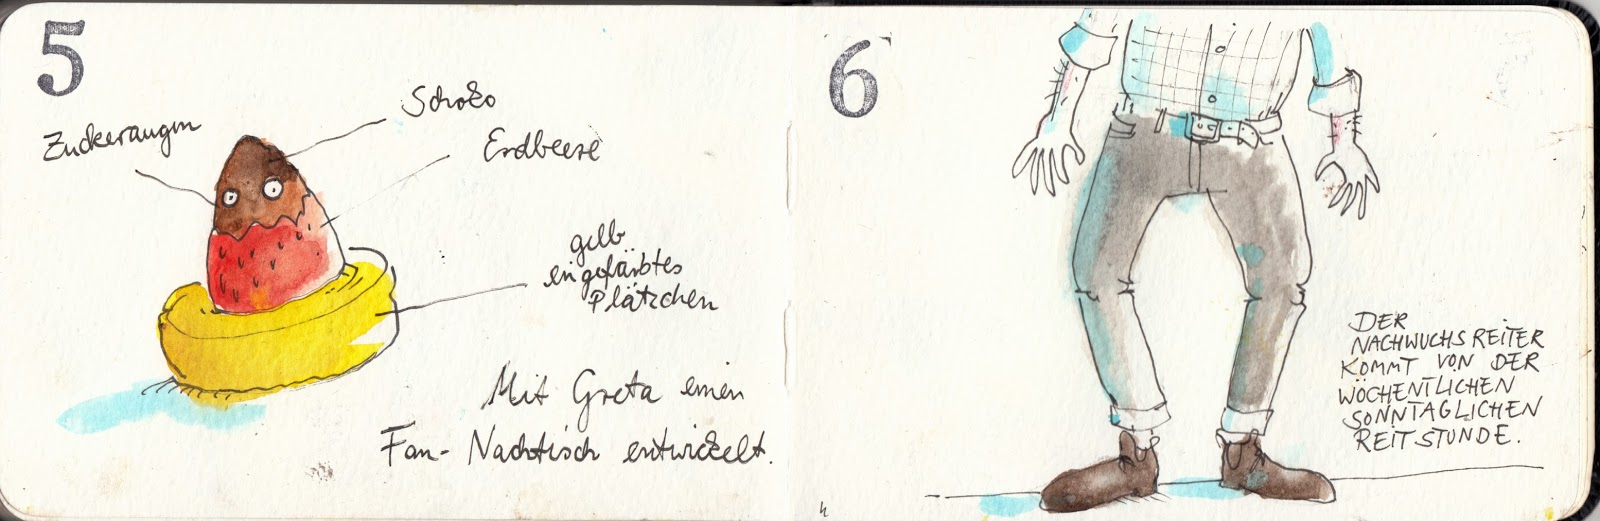 5
Zuckeraugen
Schoko
Erdbeere
gelb
eingefärbtes
Plätzchen
Mit Greta einen
Fan-Nachtisch entwickelt.
6
DER
NACHWUCHSREITER
KOMMT VON DER
WÖCHENTLICHEN
SONNTAGLICHEN
REITSTUNDE.